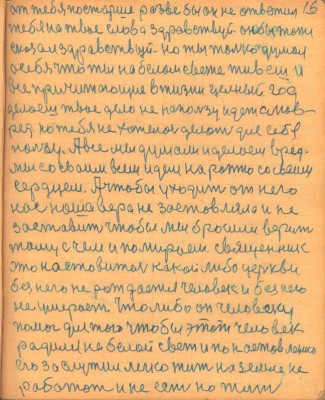 16
от тебя постарше разве бы он не ответил
тебя на твое слова здравствуй. он бы тоти
сказал здравствуй. но ты только думал
о себя что ты на белом свете живеш и
в год
делаеш твое дело не на ползу идет а на в
ред. но тебя не хотелось делат для себя
ползу. А все мы думали и делаем вред.
мы со всоим всем идем на рото со своим
сердцем. А чтобы уходит от него
нас наша вера не заставляла и не
заставит чтобы мы бросили верит
тому с чем и помираем. священник
это наставител какой либо церкви
без него не рождается человек и без него
не умирает. что либо он человеку
помог для того чтобы этот человек
родился на белой свет и по
его заслугам легко жит на земле не
работат и не сет но жит